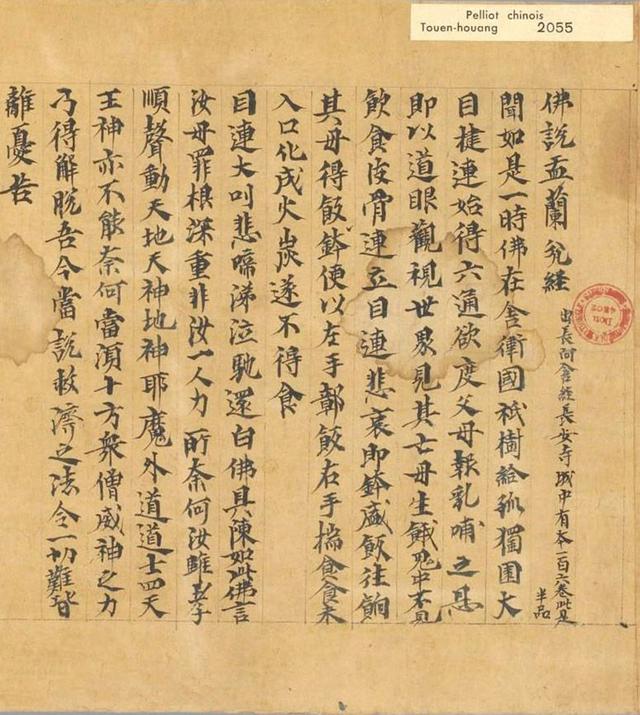 Pelliot chinois
Touen-houang 2055
佛說盂蘭瓫經
出長阿含經長安寺城中有本一百六卷此是
半品
聞如是一時佛在舍衛國祇樹給孤獨園大
目揵連始得六通欲度父母報乳哺之恩
即以道眼觀視世界見其亡母生餓鬼中不見
飲食皮骨連立目連悲哀即鉢盛飯往餉
其母得飯鉢便以左手鄣飯右手揣食食未
入口化成火炭遂不得食
目連大叫悲啼涕泣馳還白佛具陳如此佛言
汝母罪根深重非汝一人力所奈何汝雖孝
順聲動天地天神地神耶魔外道道士四天
王神亦不能奈何當須十方衆僧威神之力
乃得解脫吾今當說救濟之法令一切難皆
離憂苦